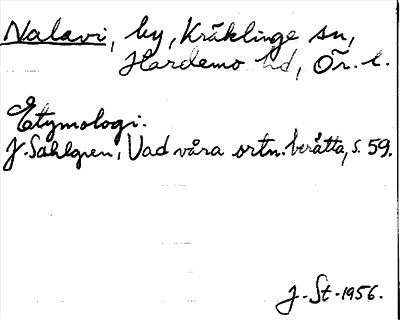 Nalavi, by, Kräklinge sn,
Hardemo hd, Ör. l.
Etymologi.
J. Sahlgren, Vad våra ortn. berätta, s. 59.
J. St. 1956.